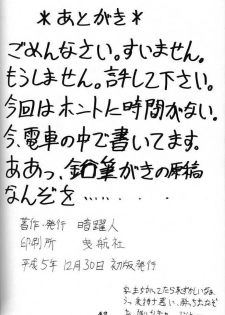 ＊あとがき＊
ごめんなさい。すいません。
もうしません。許して下さい。
今回はホントに時間がない。
今、電車の中で書いてます。
ああっ、鉛筆がきの原稿
なんぞを‥‥‥
著作・発行 晴躍人
印刷所 曳航社
平成5年12月30日 初版発行